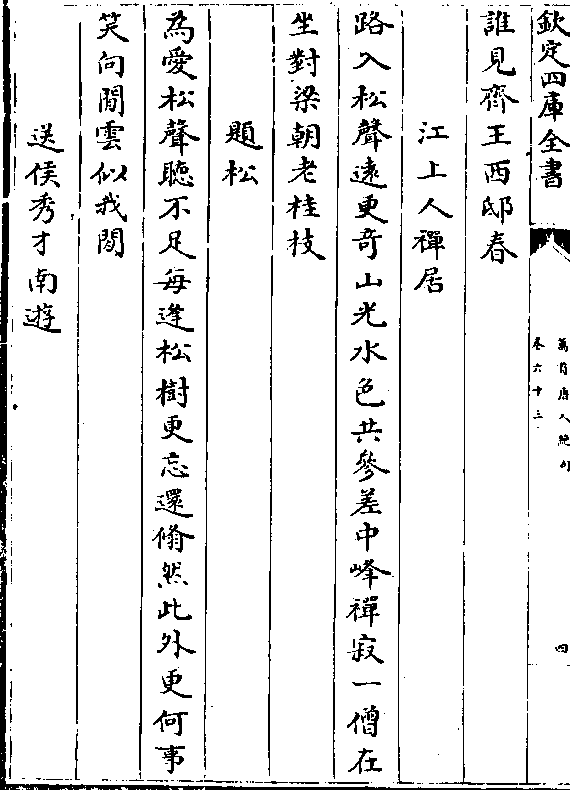 欽定四庫全書
萬首唐人絶句
卷六十三
四
誰見齊王西邸春
江上人禪居
路入松聲遠更奇山光水色共參差中峰禪寂一僧在
坐對梁朝老桂枝
題松
為愛松聲聽不足每逢松樹更忘還翛然此外更何事
笑向閒雲似我閒
送侯秀才南遊